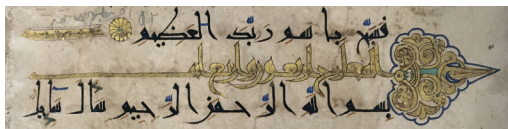 فسبح باسم ربك العظيم
المعارج اربعون واربع
بسم الله الرحمن الرحيم سال سايل